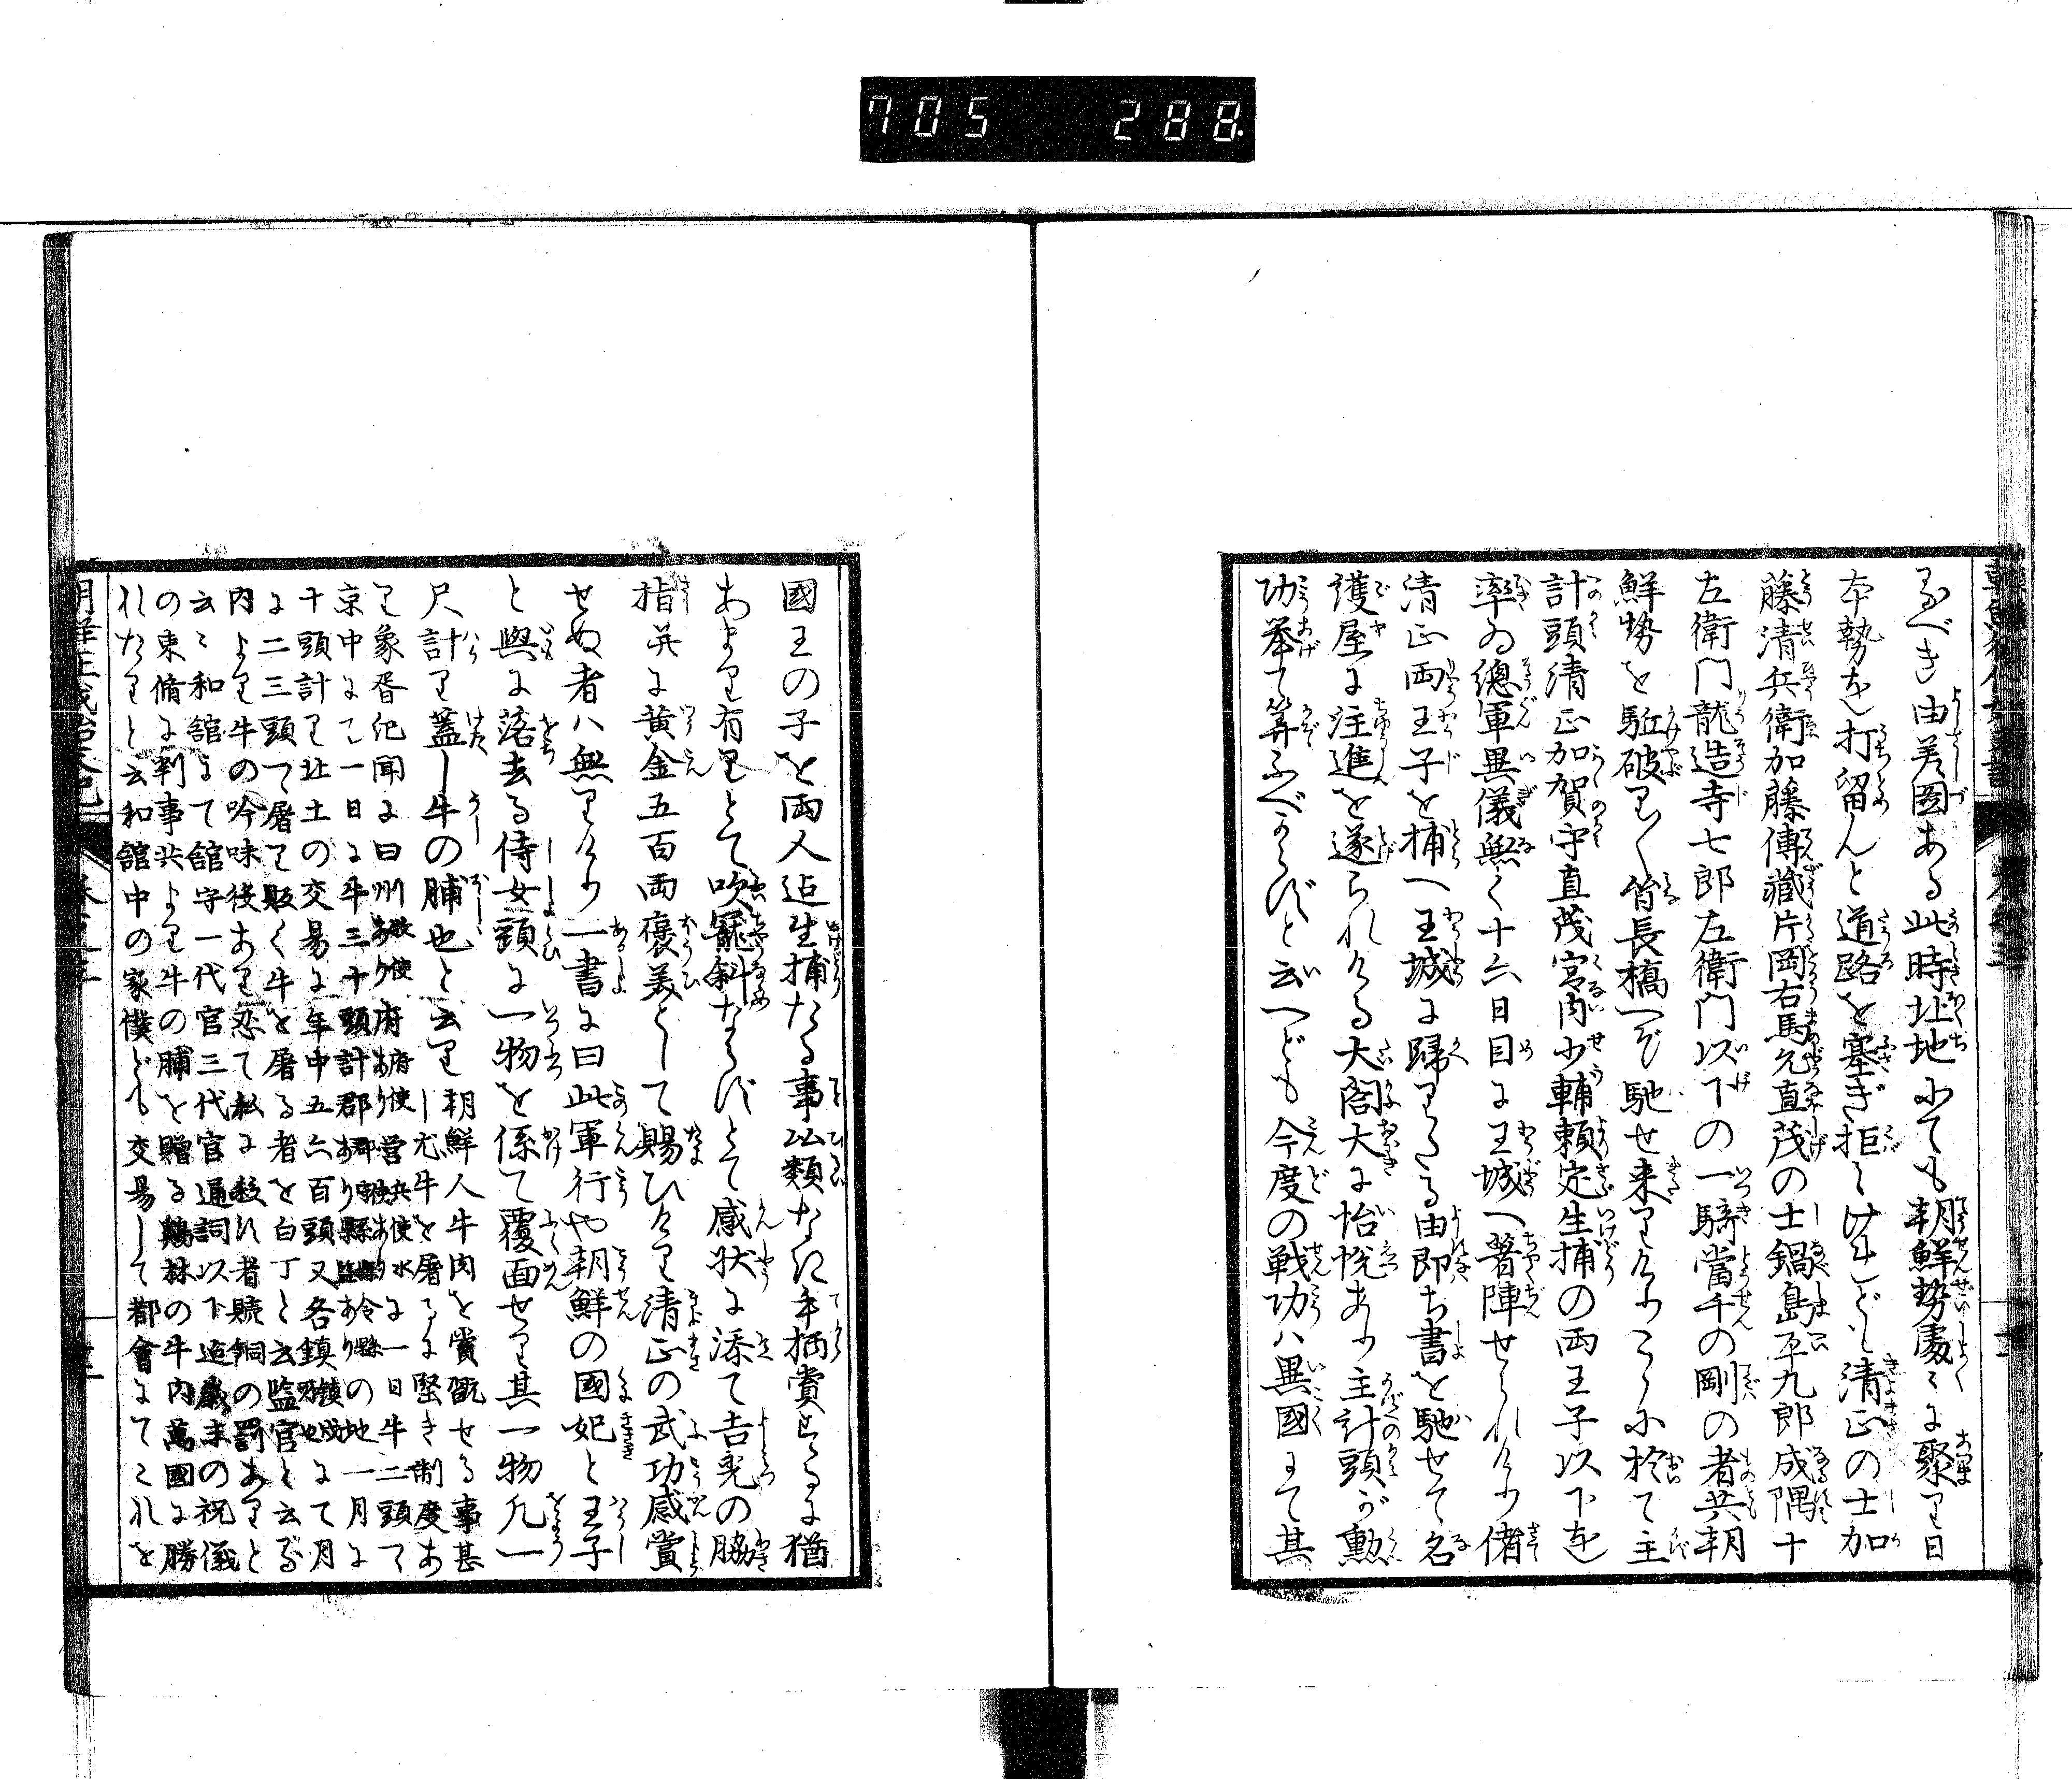 705 288
るべき由差圖ある此時北地にても朝鮮勢處〻に聚り日
本勢を打留んと道路を塞ぎ拒みけれども清正の士加
藤清兵衛加藤傳藏片岡右馬允直茂の士鍋島平九郎成隅十
左衛門龍造寺七郎左衛門以下の一騎當千の剛の者共朝
鮮勢を駈破り〳〵皆長橋へぞ馳せ来りけりこゝに於て主
計頭清正加賀守直茂宮内少輔頼定生捕の両王子以下を
率ゐ總軍異儀無く十六日目に王城へ著陣せられけり偖
清正両王子を捕へ王城に歸りたる由即ち書を馳せて名
護屋に注進を遂られける大閤大に怡悦あり主計頭が勲
功挙て筭ふべからずと云へども今度の戦功ハ異國にて其
國王の子を両人迠生捕たる事比類なき手柄賞するに猶
あまり有りとて吹籠斜ならずとて感状に添て吉光の脇
指并に黄金五百両褒美として賜ひけり清正の武功感賞
せぬ者ハ無りけり一書に曰此軍行や朝鮮の國妃と王子
と輿に落去る侍女頸に一物を係て覆面せり其一物凡一
尺計り蓋し牛の脯也と云り朝鮮人牛肉を賞翫せる事甚
し尤牛を屠るに堅き制度あ
り象胥紀聞に曰州牧使あり府府使あり營兵使水使ありに一日牛二頭て
京中にて一日に牛三十頭計郡郡守あり縣縣令縣監ありの地一月に
十頭計り北土の交易に年中五六百頭又各鎮鎮城也にて月
に二三頭て屠り販く牛を屠る者を白丁と云監官と云が
内より牛の吟味後あり忍て私に殺す者贖銅の罰ありと
云〻和館にて館守一代官三代官通詞以下迠歳末の祝儀
の束脩に判事共より牛の脯を贈る鷄林の牛肉萬國に勝
れたりと云和館中の家僕ども交易して都會にてこれを